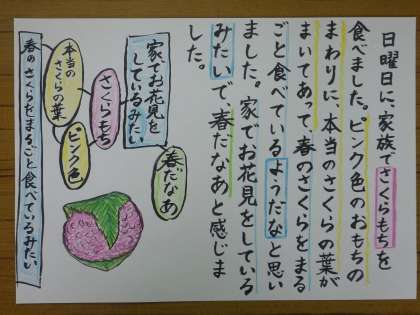 日曜日に、家族でさくらもちを
食べました。ピンク色のおもちの
まわりに、本当のさくらの葉が
まいてあって、春のさくらをまる
ごと食べているようだなと思い
ました。家でお花見をしている
みたいで、春だなあと感じま
した。
春だなあ
家でお花見を
しているみたい
さくらもち
ピンク色
本当の
さくらの葉
春のさくらをまるごと食べているみたい